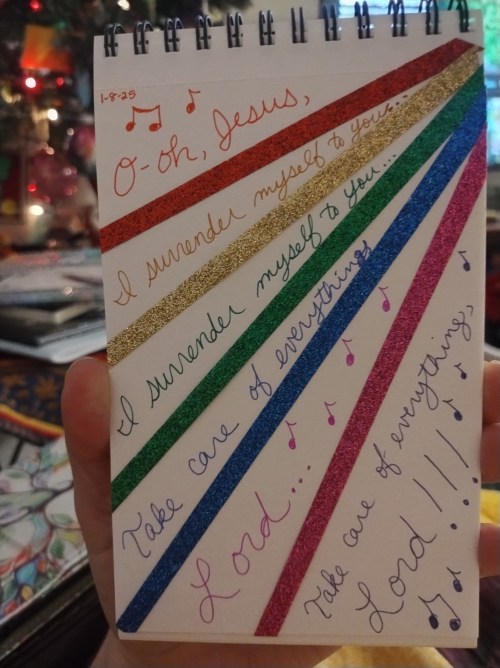 1-8-25
O-oh, Jesus,
I surrender myself to you...
I surrender myself to you...
Take care of everything
Lord...
Take care of everything,
Lord!!!